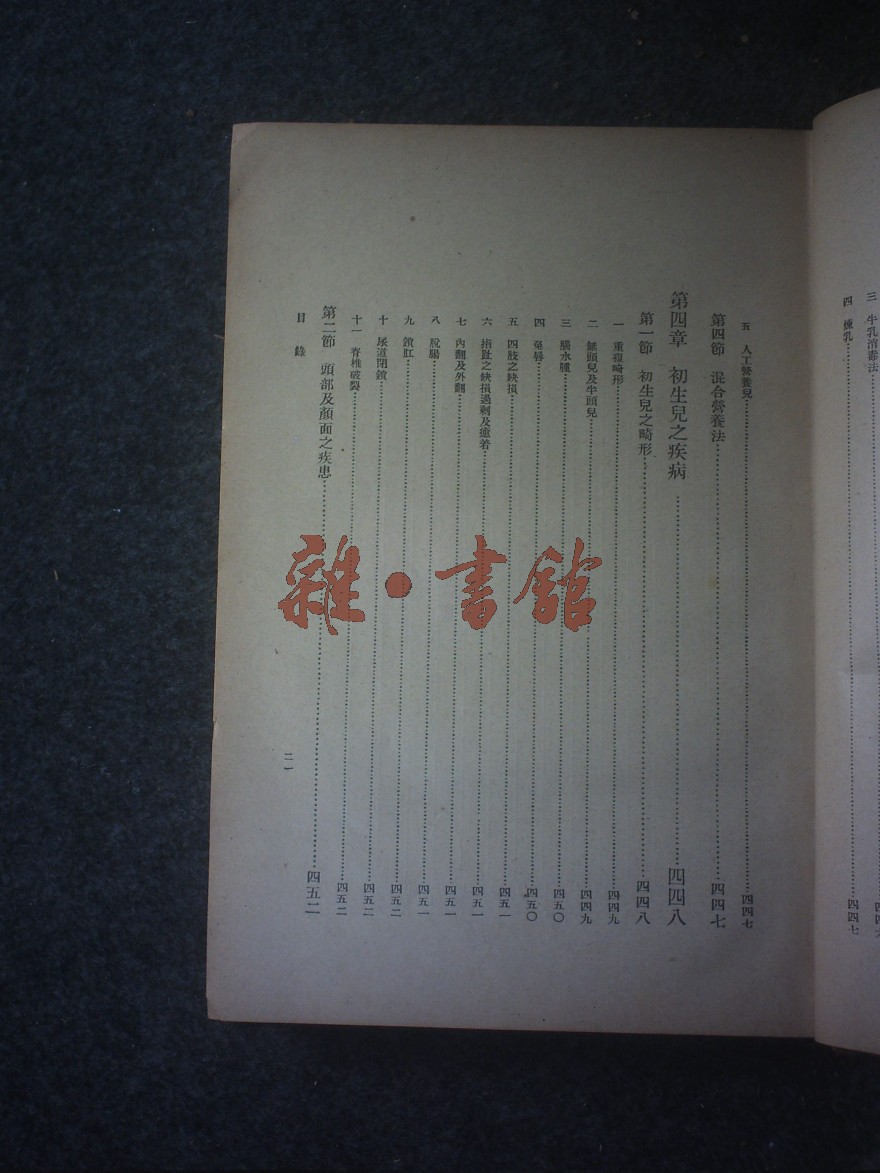 三 牛乳消毒法
四 煉乳 四四七
五 人工營養兒 四四七
第四節 混合營養法 四四七
第四章 初生兒之疾病 四四八
第一節 初生兒之畸形 四四八
一 重複畸形 四四九
二 無頭兒及半頭兒 四四九
三 腦水腫 四五〇
四 兔唇 四五〇
五 四肢之缺損 四五一
六 指趾之缺損過剩及癒着 四五一
七 內翻及外翻 四五一
八 脫腸 四五一
九 鎖肛 四五二
十 尿道閉鎖 四五二
十一 脊椎破裂 四五二
第二節 頭部及顏面之疾患 四五二
目錄
二一
雜·書館